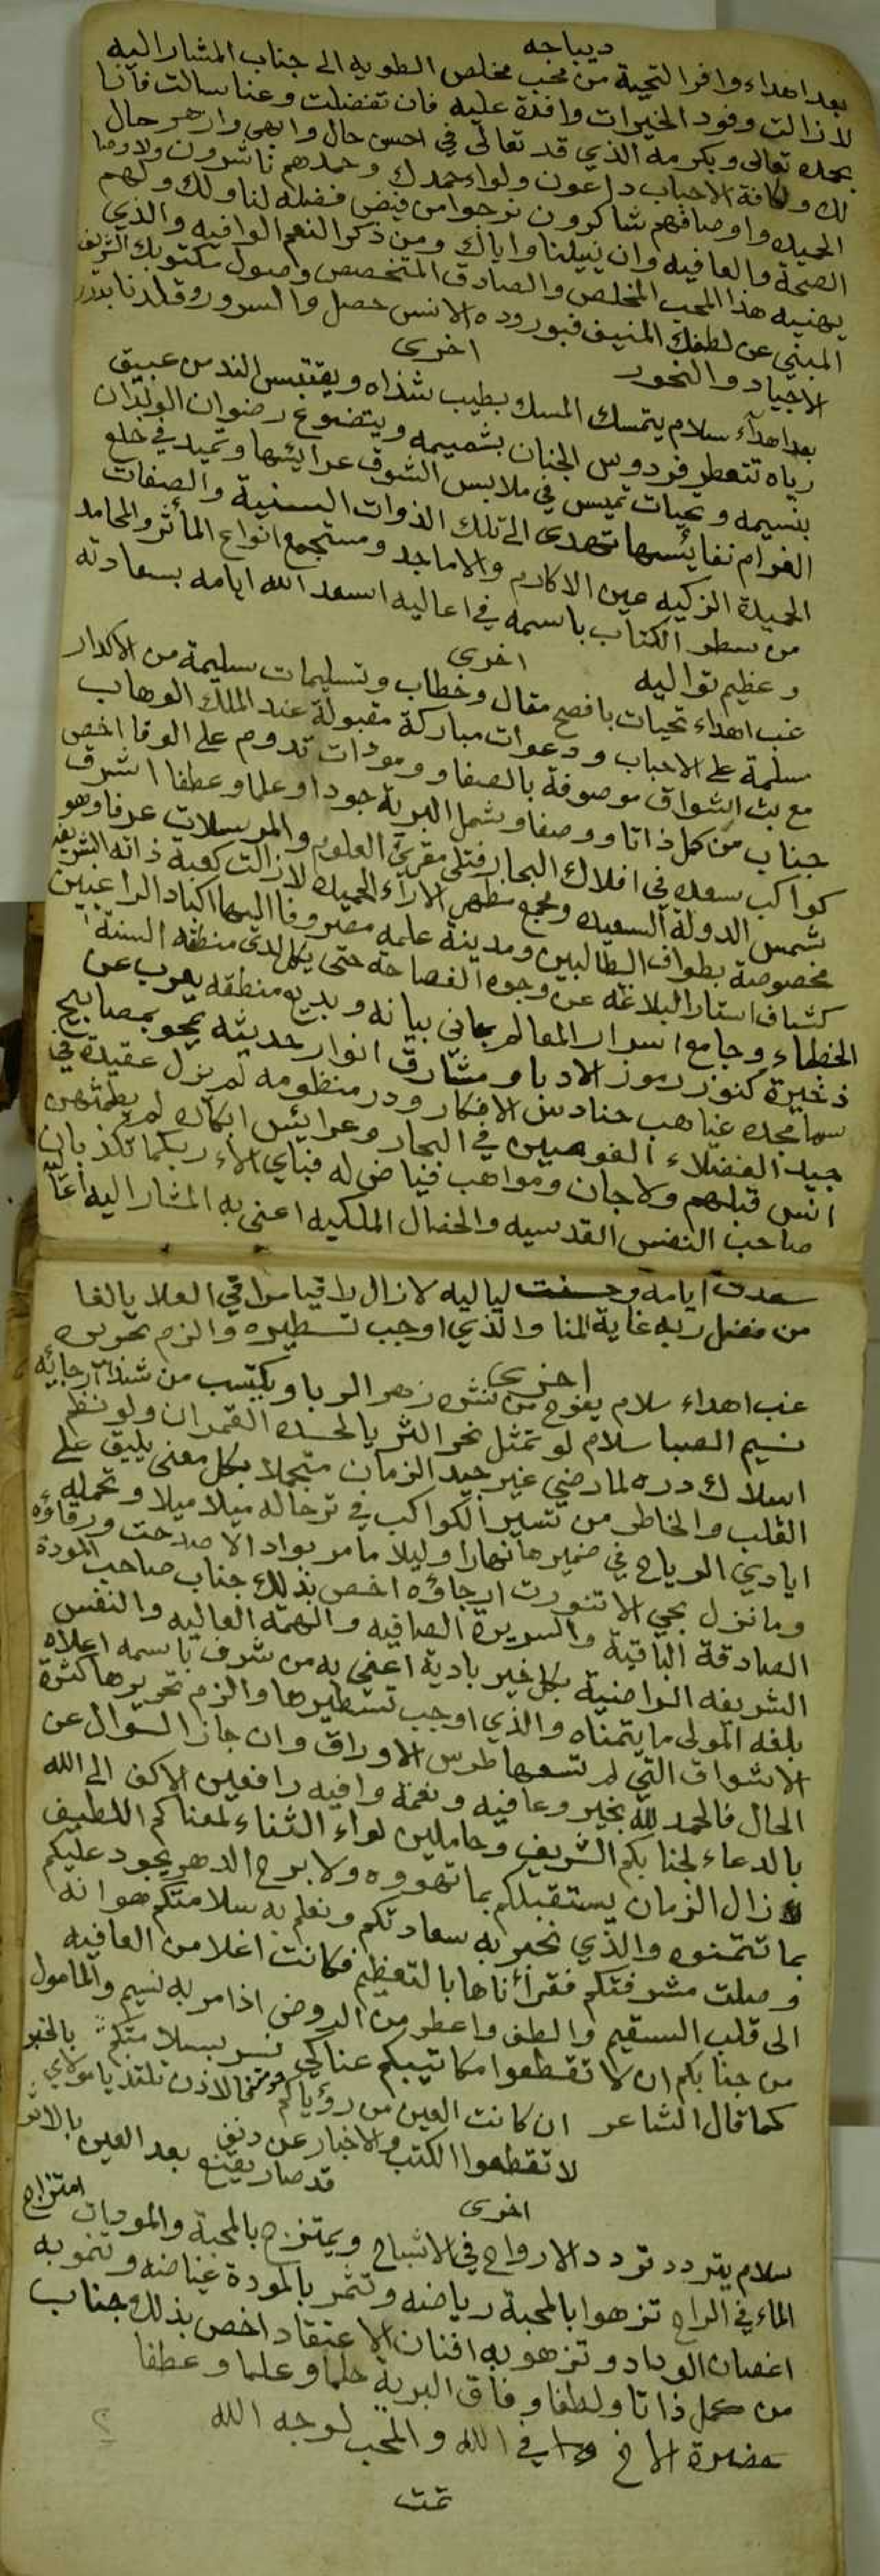 ديباجه
بعد اهداء وافر التحية من محب مخلص الطويه الى جناب المشار اليه
لا زالت وفود الخيرات وافدة عليه فان تفضلت وعنا سالت فاننا
بحمده تعالى وبكرمه الذي قد تعالى في احسن حال وابهى وازهر حال
لك ولكافة الاحباب داعون ولواء حمدك وحمدهم ناشرون ولاوصافك
الحميده واوصافهم شاكرون نرجوا من فيض فضله لنا ولك ولهم
الصحة والعافيه وان ينيلنا واياك ومن ذكر النعم الوافيه والذي
ينهيه هذا المحب المخلص والصادق المتخصص وصول مكتوبك الشريف
المبني عن لطفك المنيف فبوروده الانس حصل والسرور وقلدنا بدرر
الاجياد والنحور
اخرى
بعد اهداء سلام يتمسك المسك بطيب شذاه ويقتبس الند من عبيق
رياه تتعطر فردوس الجنان بشميمه ويتضوع رضوان الولدان
بنسيمه وتحيات تميس في ملابس الشوق عرايسها وتميد في خلع
الغرام نفايسها تهدى الى تلك الذوات السنية والصفات
الحميدة الزكيه عين الاكارم والاماجد ومستجمع انواع المأثر والمحامد
من سطر الكتاب باسمه في اعاليه اسعد الله ايامه بسعادته
وعظيم تواليه
اخرى
غب اهداء تحيات بافصح مقال وخطاب وتسليمات سليمة من الاكدار
مسلمة على الاحباب ودعوات مباركة مقبولة عند الملك الوهاب
مع بث اشواق موصوفة بالصفا ومودات تدوم على الوفا اخص
جناب من كمل ذاتا ووصفا وشمل البرية جودا وعلما وعطفا اشرق
كواكب سعده في افلاك العلوم والمرسلات عرفا وهو
شمس الدولة السعيده ومجمع مظهر الاراء الحميده لا زالت كعبة ذاته الشريفه
مخصوصة بطواف الطالبين ومدينة علمه مصروفا اليها اكباد الراغبين
كشاف استار البلاغه عن وجوه الفصاحه حتى يكل لدى منطقه السنة
الخطباء وجامع اسرار المعالم بمعاني بيانه وبديع منطقه يعرب عن
ذخيرة كنوز رموز الادبا ومشارق انوار حديثه يمحو بمصابيح
سما مجده غياهب حنادس الافكار ودر منظومه لم يزل عقيدة في
جيد الفضلاء الغوصين في البحار وعرايس ابكاره لم يطمثهن
انس قبلهم ولا جان ومواهب فياض له فباي الاء ربكما تكذبان
صاحب النفس القدسيه والخصال الملكيه اعني به المشار اليه اعلاه
سعدت ايامه وحسنت لياليه لا زال راقيا مراقي العلا بالغا
من فضل ربه غاية المنا والذي اوجب تسطيره والزم تحريره
اخرى
غب اهداء سلام يفوح من نشره زهر الربا ويكتسب من شذا ارجائه
نسيم الصبا سلام لو تمثل نحو الثريا لحسده القمران ولو نظم
اسلاك دره لما رضي غير جيد الزمان متجملا بكل معنى يليق على
القلب والخاطر من تسير الكواكب في ترحاله ميلا ميلا وتحمله
ايادي الرياح في ضميرها نهارا وليلا ما مر بواد الا صدحت ورقاؤه
وما نزل بحي الا تنورت ارجاؤه اخص بذلك جناب صاحب المودة
الصادقة الباقية والسريرة الصافيه والهمة العاليه والنفس
الشريفه الراضية بكل خير بادية اعني به من شرف باسمه اعلاه
بلغه المولى ما يتمناه والذي اوجب تسطيرها والزم تحريرها كثرة
الاشواق التي لم تسعها طرس الاوراق وان جاز السؤال عن
الحال فالحمد لله بخير وعافيه ونعمة وافيه رافعين الاكف الى الله
بالدعاء لجنابكم الشريف وحاملين لواء الثناء لمعناكم اللطيف
لا زال الزمان يستقبلكم بما تهووه ولا برح الدهر يجود عليكم
بما تتمنوه والذي نخبر به سعادتكم ونعلم به سلامتكم هو انه
وصلت مشرفتكم فقرأناها بالتعظيم فكانت اغلا من العافيه
الى قلب السقيم والطف واعطر من الروض اذا مر به نسيم والمامول
من جنابكم ان لا تقطعوا مكاتيبكم عنا كي نسر بسلامتكم
كما قال الشاعر ان كانت العين من رؤياكم فالاذن تلتذ يا مولاي بالخبر
لا تقطعوا الكتب والاخبار عن دنق
قد صار يقنع بعد العين بالاثر
اخرى
سلام يتردد تردد الارواح في الاشباح ويمتزج بالمحبة والمودات امتزاج
الماء في الراح تزهوا بالمحبة رياضه وتثمر بالمودة غياضه وتنمو به
اغصان الوداد وتزهو به افنان الاعتقاد اخص بذلك جناب
من كمل ذاتا ولطفا وفاق البرية حلما وعلما وعطفا
حضرة الاخ في الله والمحب لوجه الله
تمت